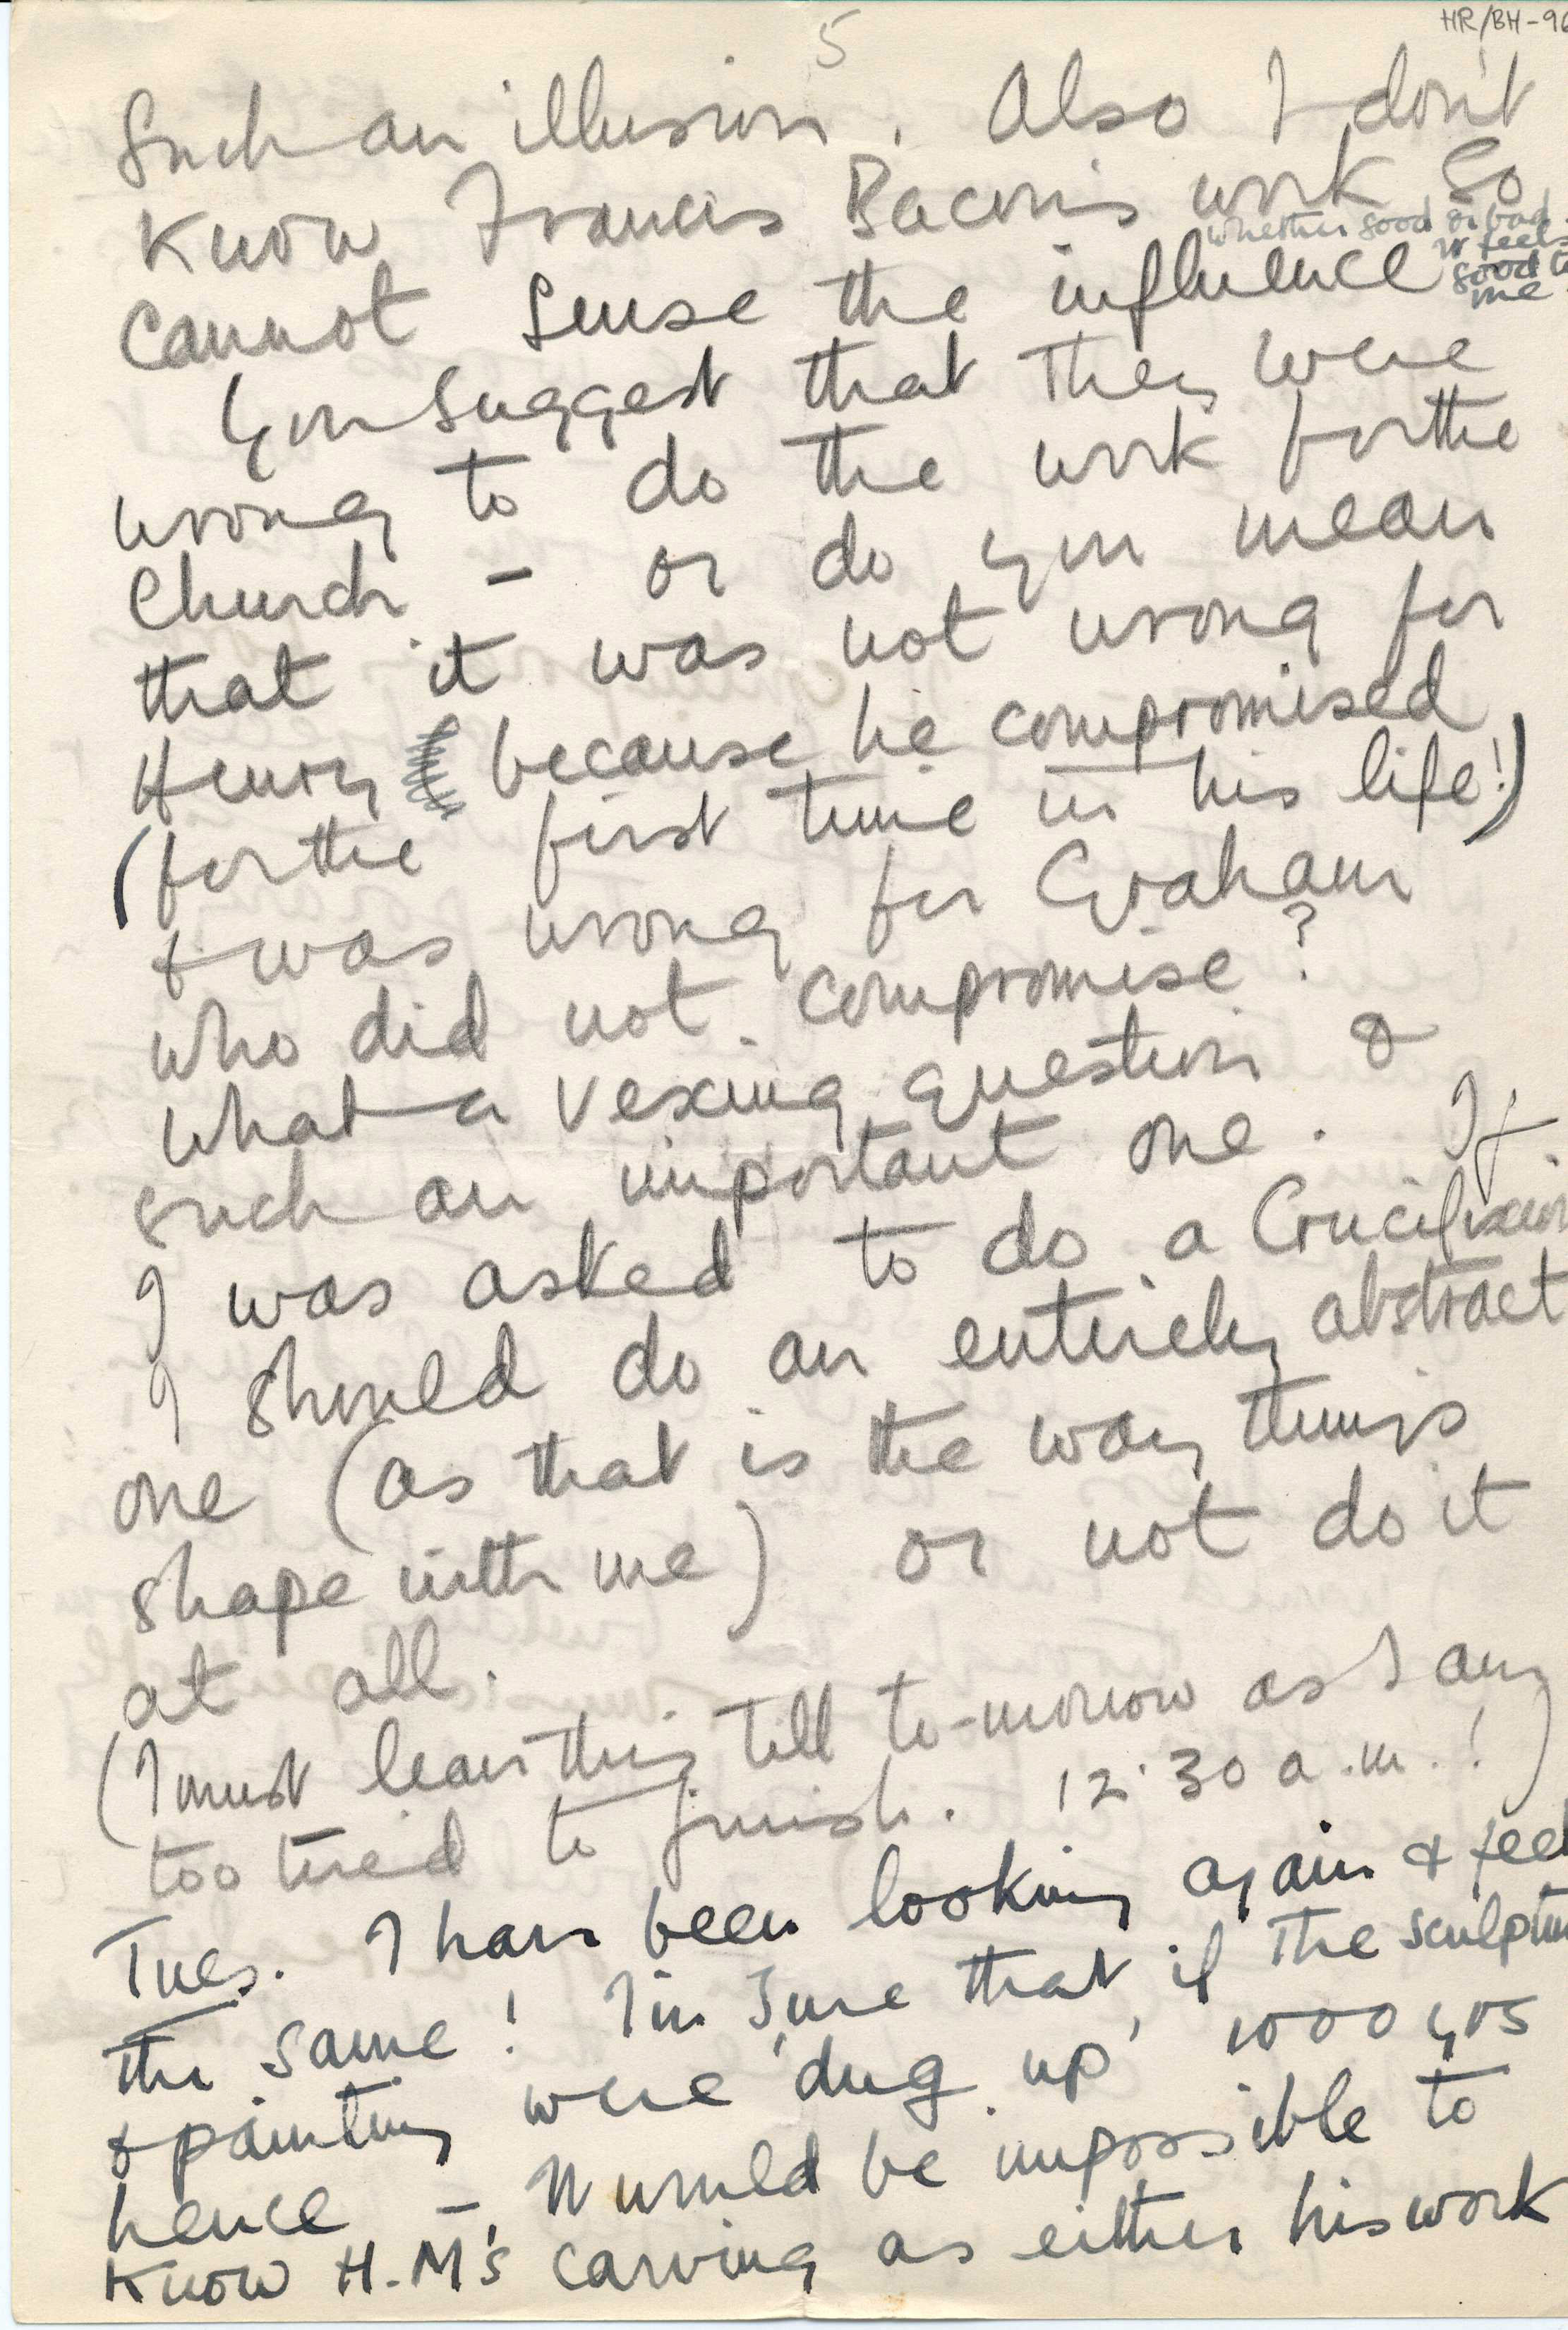 5
HR/BH-96
Such an illusion. Also I don't
know Francis Bacon's work So
cannot sense the influence
whether good or bad.
it feels
good to
me
You suggest that they were
wrong to do the work for the
Church – or do you mean
that it was not wrong for
Henry because he compromised
(for the first time in his life!)
& was wrong for Graham
who did not compromise?
What a vexing question &
such an important one. If
I was asked to do a Crucifixion
I should do an entirely abstract
one (as that is the way things
shape with me) or not do it
at all.
(I must leave this till to-morrow as I am
too tired to finish. 12.30 a.m.!)
Tues. I have been looking again & feel
the same! I'm sure that if the sculpture
& painting were 'dug up' 1000 yrs
hence – it would be impossible to
know H.M's carving as either his work